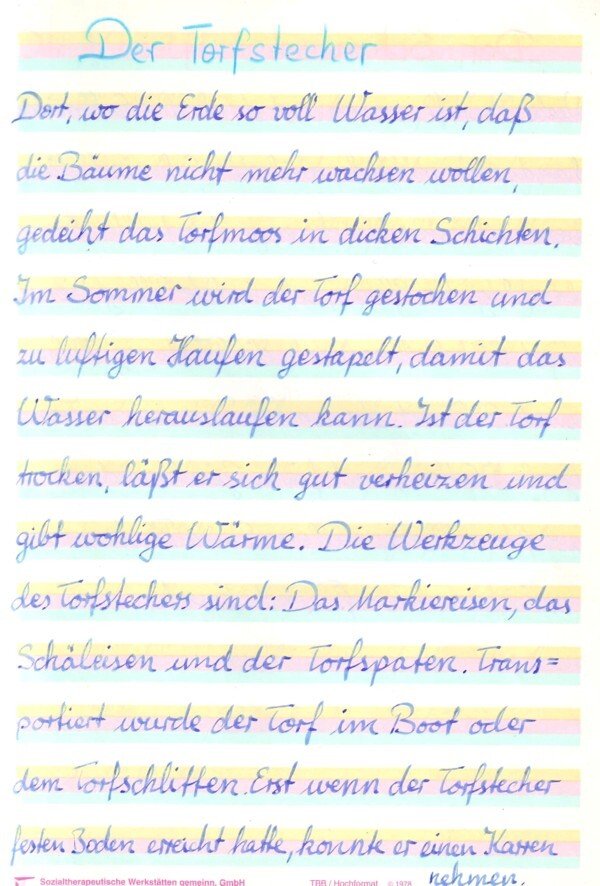 Der Torfstecher
Dort, wo die Erde so voll Wasser ist, daß
die Bäume nicht mehr wachsen wollen,
gedeiht das Torfmoos in dicken Schichten.
Im Sommer wird der Torf gestochen und
zu luftigen Haufen gestapelt, damit das
Wasser herauslaufen kann. Ist der Torf
trocken, läßt er sich gut verheizen und
gibt wohlige Wärme. Die Werkzeuge
des Torfstechers sind: Das Markiereisen, das
Schäleisen und der Torfspaten. Trans=
portiert wurde der Torf im Boot oder
dem Torfschlitten. Erst wenn der Torfstecher
festen Boden erreicht hatte, konnte er einen Karren
nehmen.
Sozialtherapeutische Werkstätten gemeinn. GmbH TBB / Hochformat © 1978